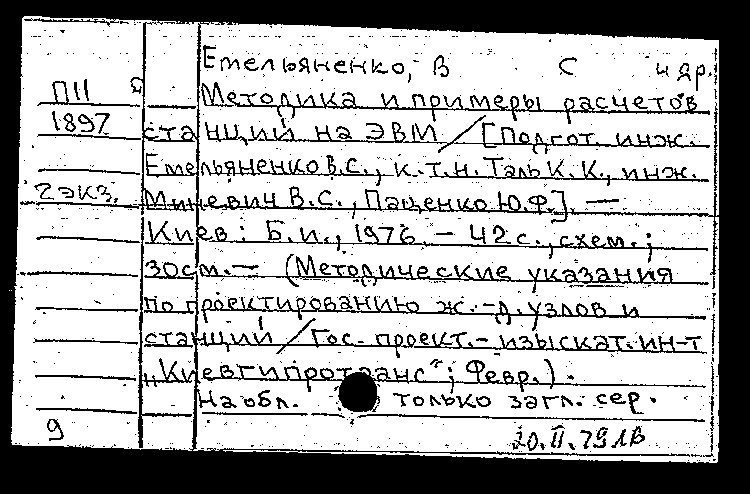 Емельяненко, В С и др.
П11
1897
Методика и примеры расчетов
станций на ЭВМ / [Подгот. инж.
Емельяненко В.С., к.т.н. Таль К.К., инж.
2 экз.
Миневич В.С., Паценко Ю.Ф.]. —
Киев: Б.и., 1976. - 42 с., схем.;
30см. — (Методические указания
по проектированию ж.-д. узлов и
станций / Гос. проект.-изыскат. ин-т
„Киевгипротранс"; Февр.).
На обл. только загл. сер.
9
20.II.79